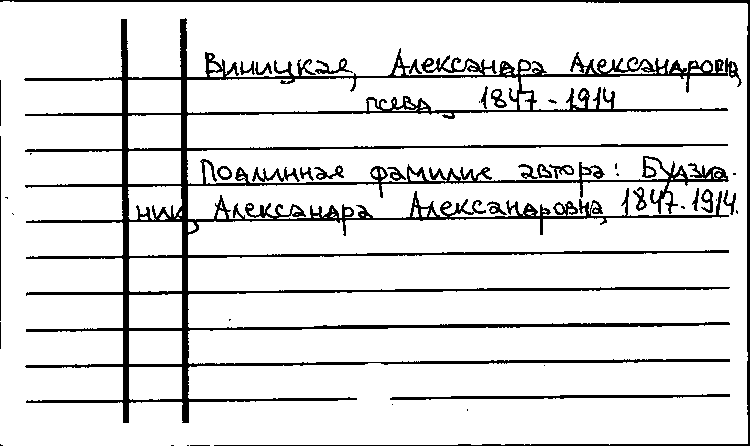 Виницкая, Александра Александровна,
псевд., 1847-1914
Подлинная фамилия автора: Будзиа-
ник, Александра Александровна, 1847-1914.